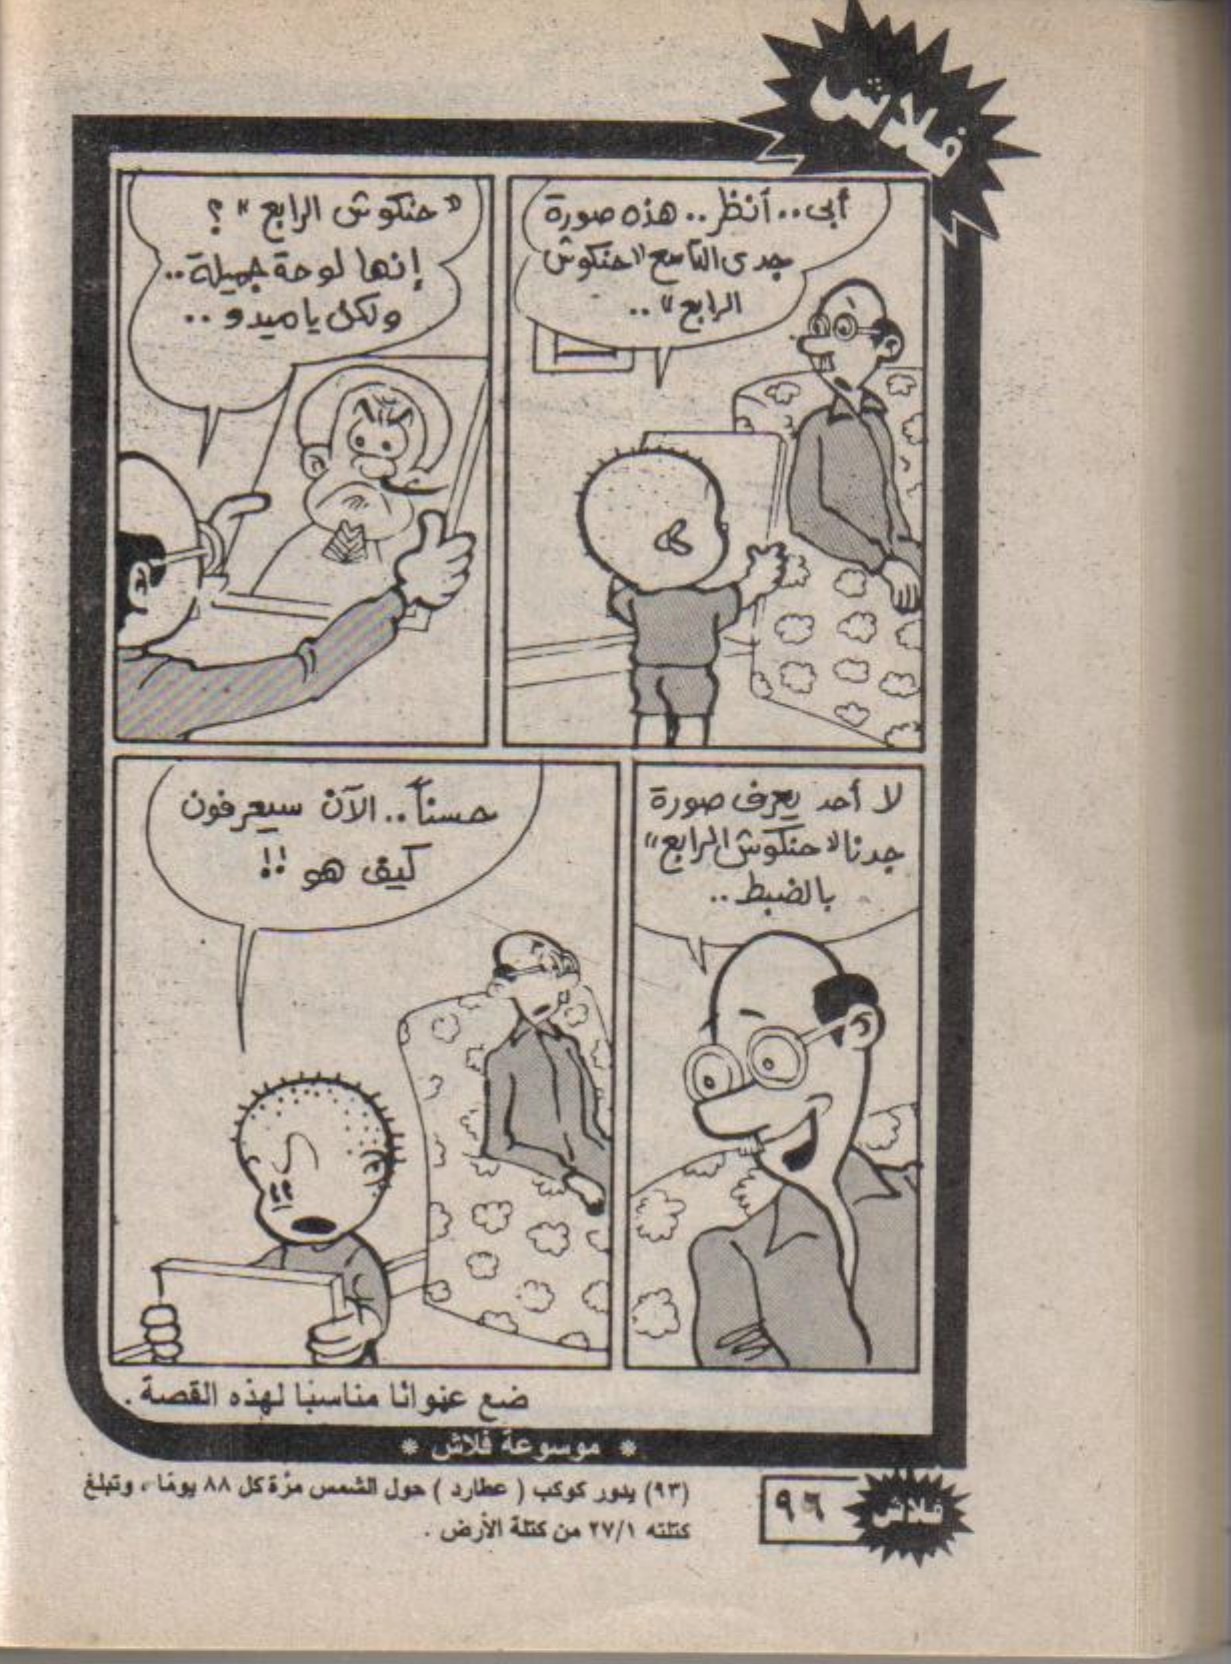 فلاش
أبى.. أنظر.. هذه صورة
جدى التاسع "حنكوش
الرابع"..
"حنكوش الرابع"؟
إنها لوحة جميلة..
ولكن يا ميدو..
لا أحد يعرف صورة
جدنا "حنكوش الرابع"
بالضبط..
حسناً.. الآن سيعرفون
كيف هو !!
ضع عنوانا مناسبا لهذه القصة .
* موسوعة فلاش *
(٩٣) يدور كوكب ( عطارد ) حول الشمس مرّة كل ٨٨ يومًا ، وتبلغ
كتلته ٢٧/١ من كتلة الأرض .
فلاش
٩٦